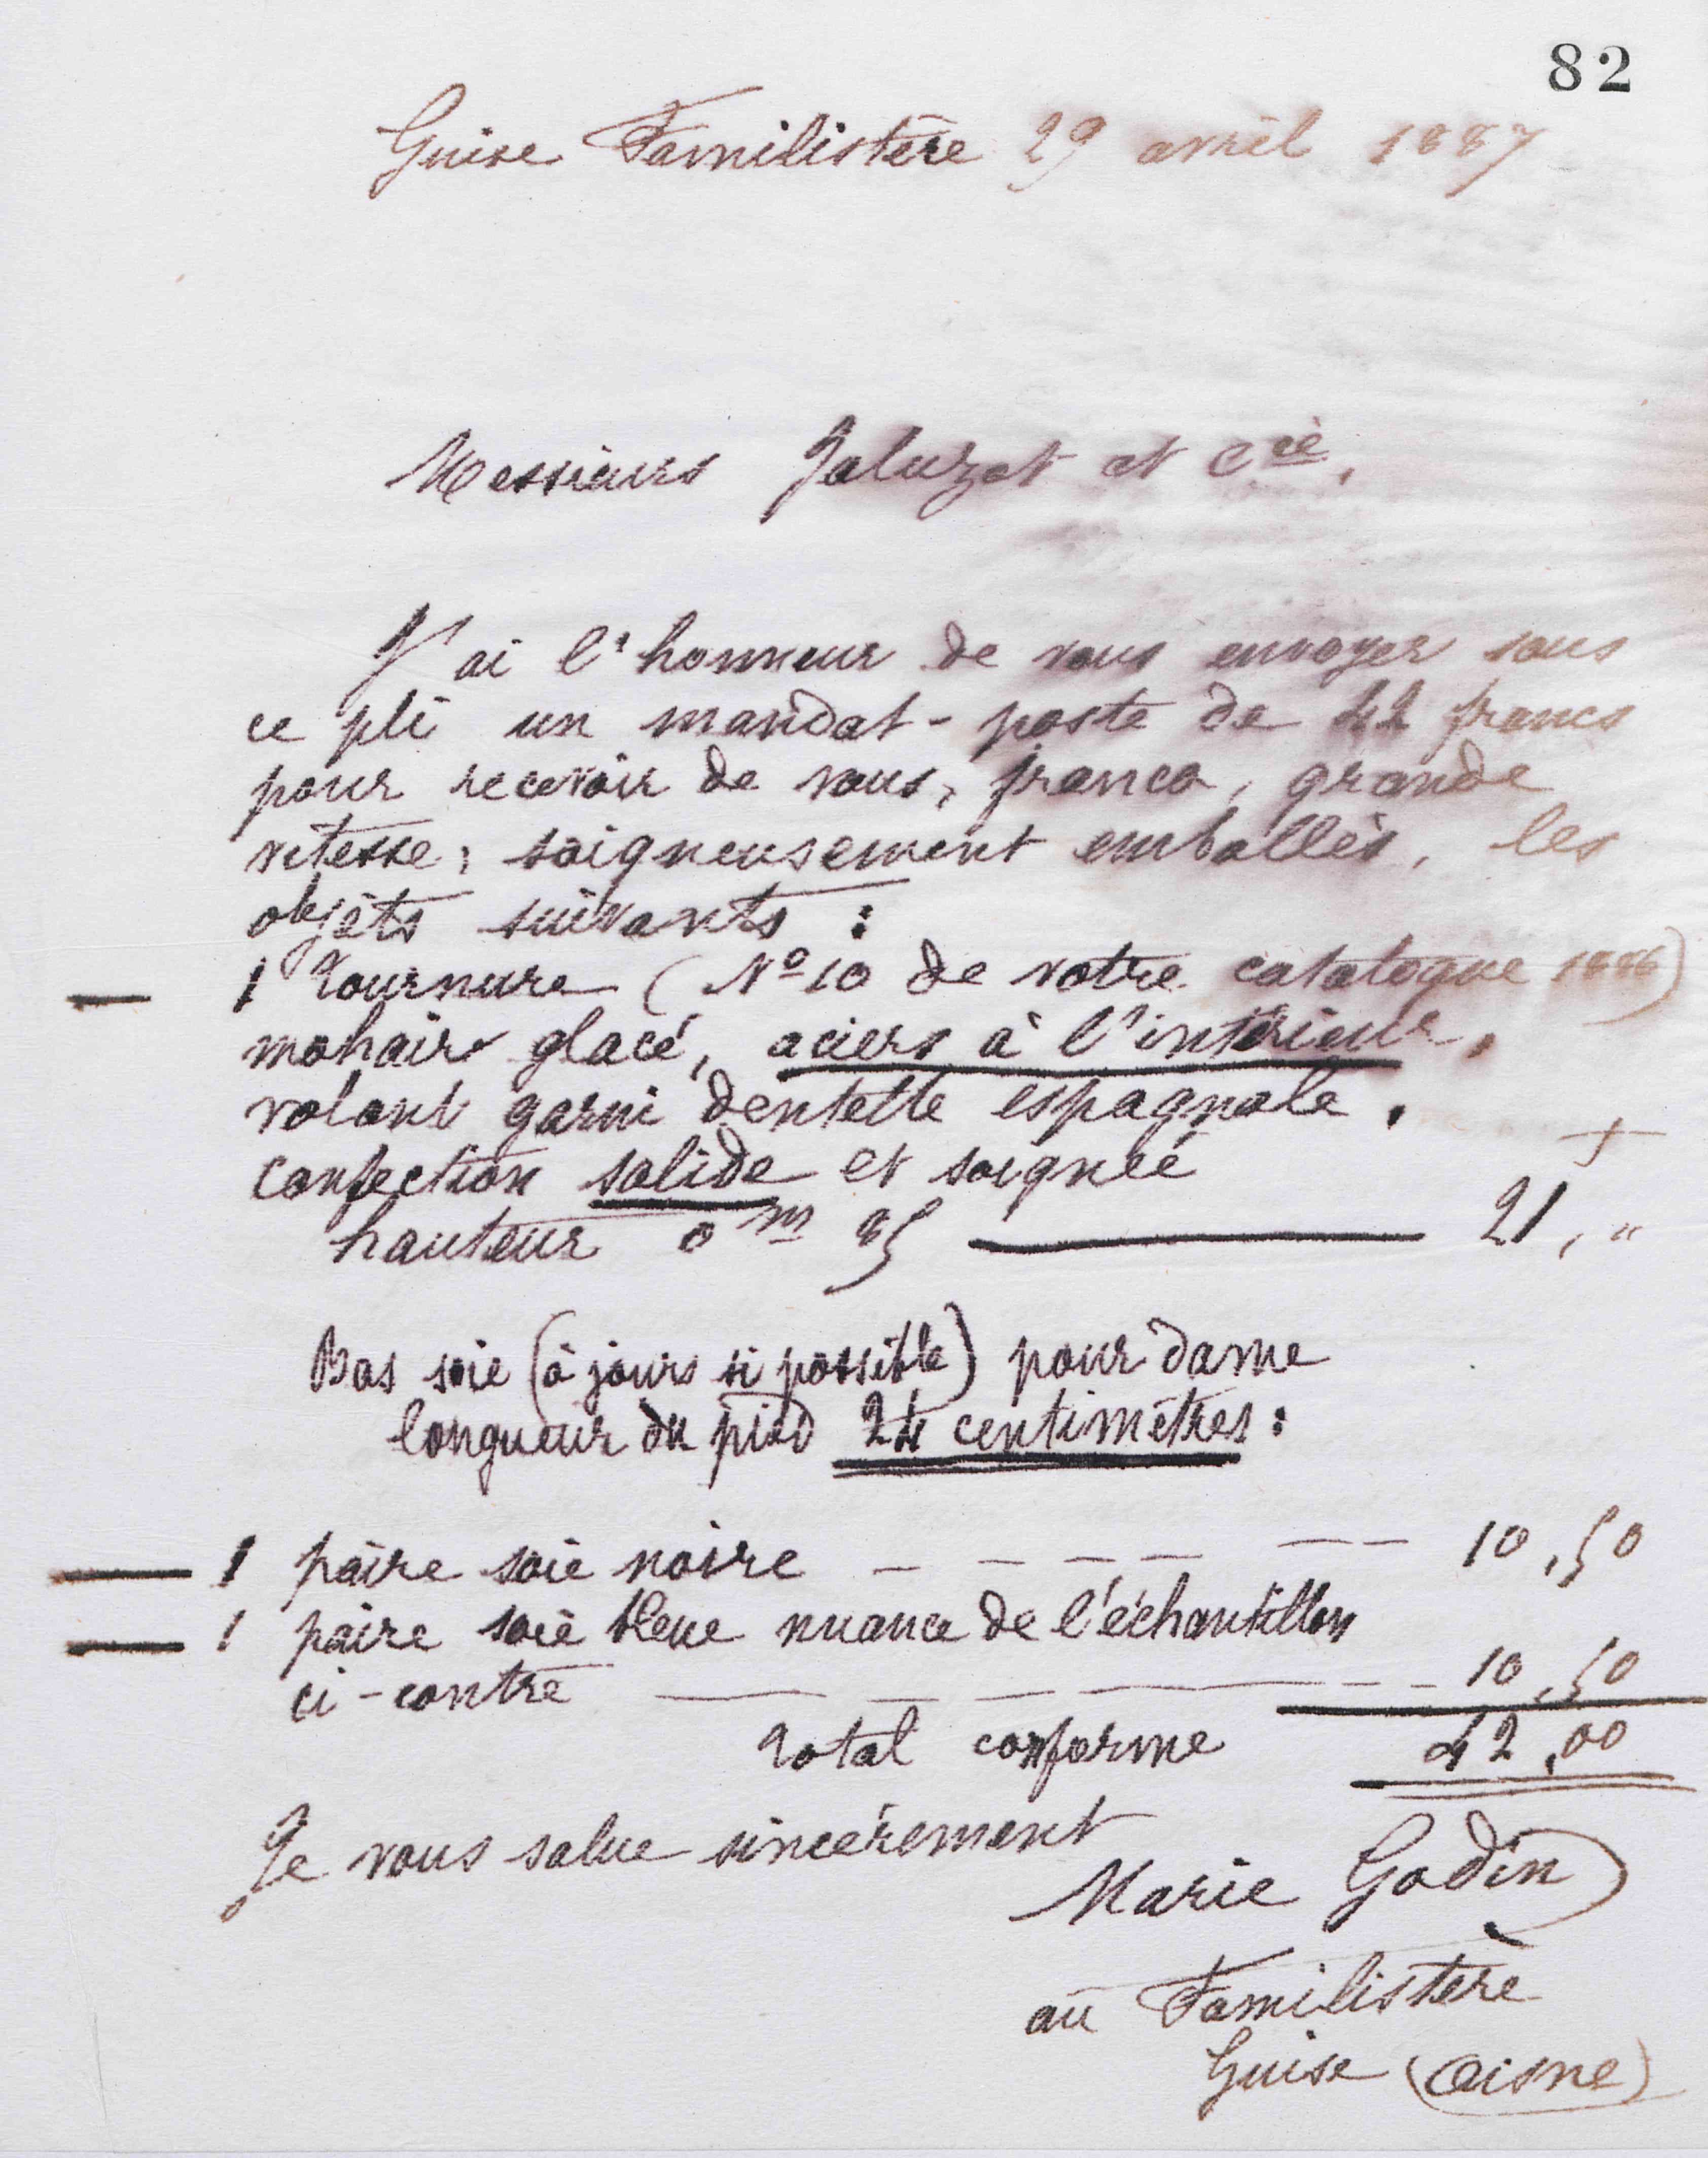 82
Guise Familistère 29 avril 1887
Messieurs Jaluzot et Cie,
J'ai l'honneur de vous envoyer sous
ce pli un mandat-poste de 42 francs
pour recevoir de vous, franco, grande
vitesse, soigneusement emballés, les
objets suivants :
1 Tournure (No 10 de votre catalogue 1886)
mohair glacé, aciers à l'intérieur,
volant garni dentelle espagnole,
confection solide et soignée
hauteur 0m 85 21, "
Bas soie (à jours si possible) pour dame
longueur du pied 24 centimètres :
1 paire soie noire 10,50
1 paire soie bleue nuance de l'échantillon
ci-contre 10,50
Total conforme 42,00
Je vous salue sincèrement
Marie Godin
au Familistère
Guise (Aisne)